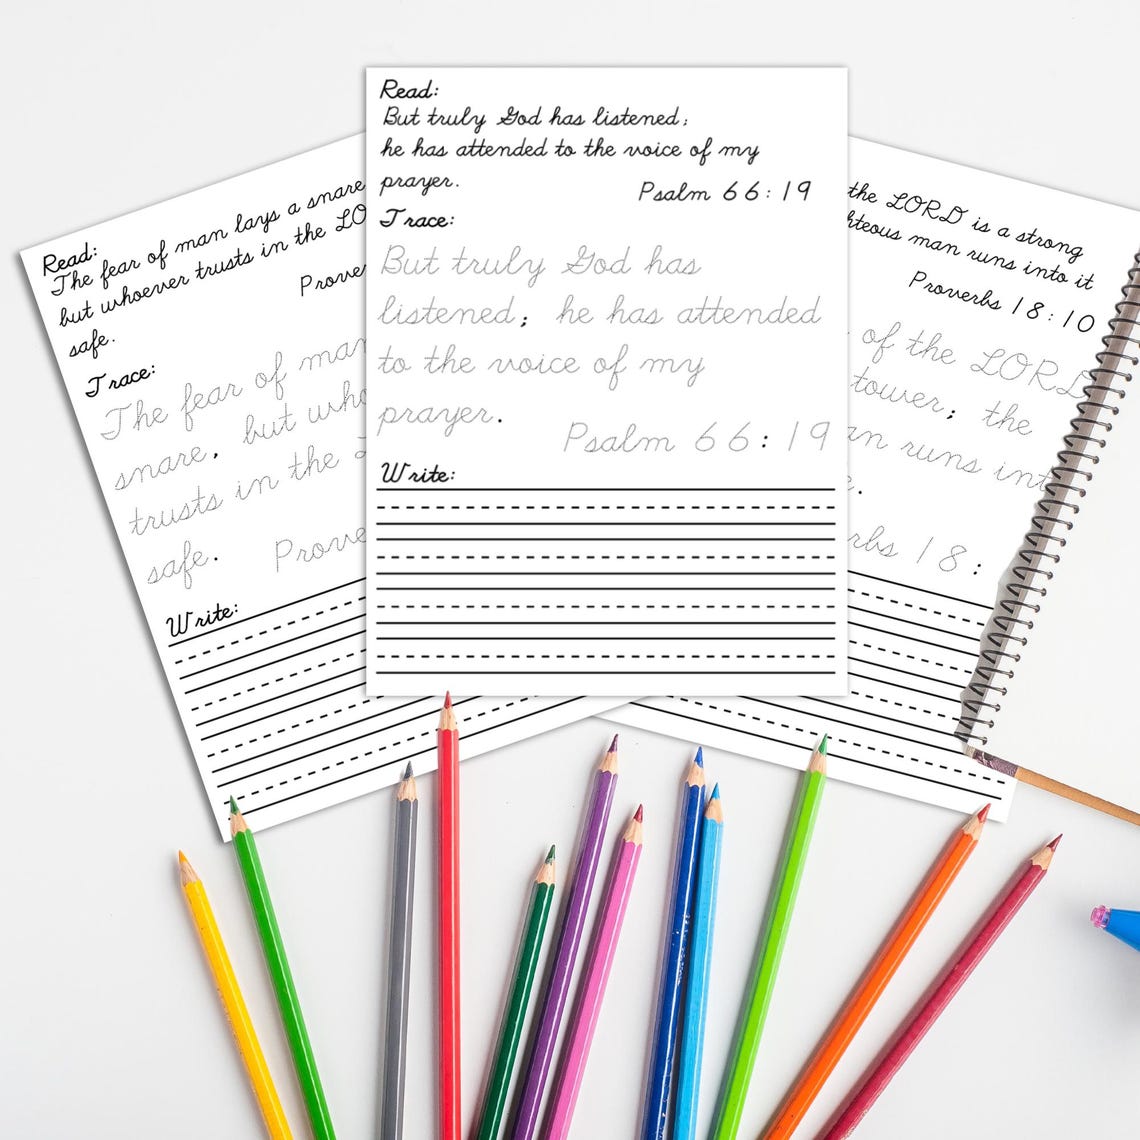 Read:
The fear of man lays a snare
but whoever trusts in the LO
Prover
safe.
Trace:
The fear of man
snare, but who
trusts in the
safe. Prove
Write:
Read:
But truly God has listened;
he has attended to the voice of my
prayer.
Psalm 66:19
Trace:
But truly God has
listened; he has attended
to the voice of my
prayer.
Psalm 66:19
Write:
the LORD is a strong
ghteous man runs into it
Proverbs 18:10
of the LORD
tower; the
an runs int
rbs 18: